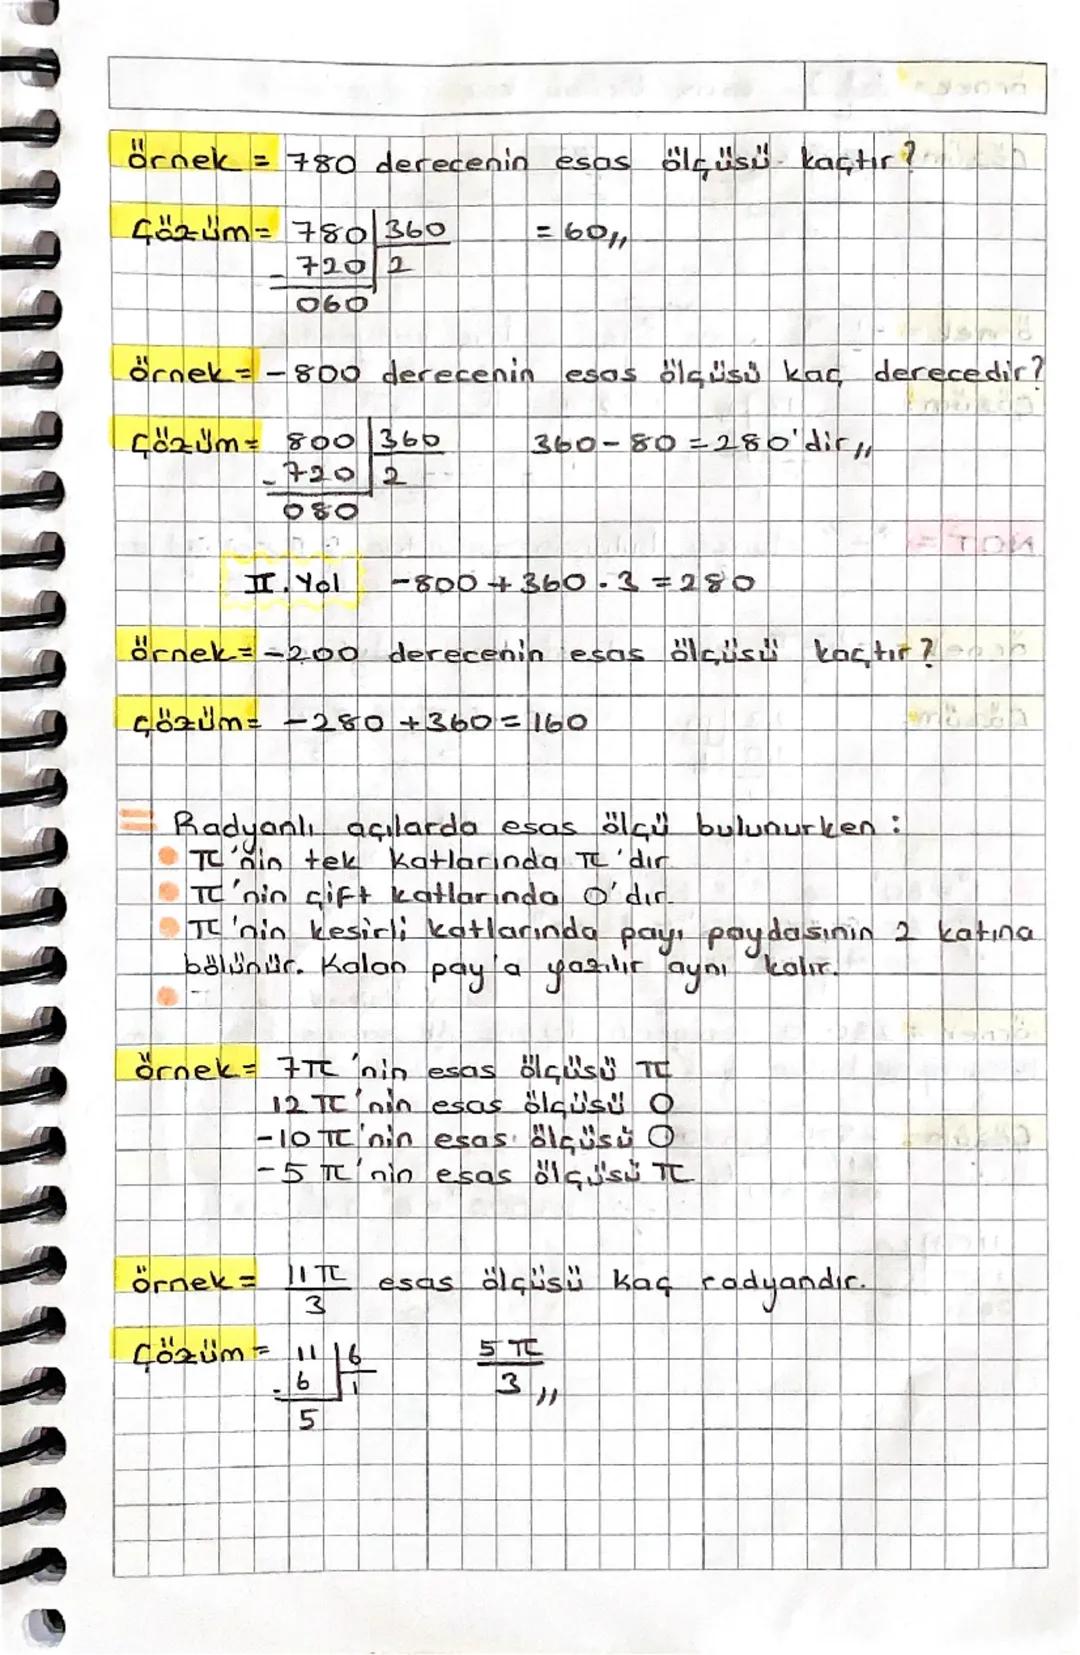 örnek = 780 derecenin esas ölçüsü kaçtır?
Çözüm = 780 360 = 60,,
- 720 2
060
örnek = -800 derecenin esas ölçüsü kaç derecedir?
Çözüm = 800 360 360 - 80 = 280'dir,,
- 720 2
080
II. Yol -800 + 360 . 3 = 280
örnek = -200 derecenin esas ölçüsü kaçtır?
çözüm = -280 + 360 = 160
= Radyanlı açılarda esas ölçü bulunurken :
• π'nin tek katlarında π'dir.
• π'nin çift katlarında 0'dır.
• π'nin kesirli katlarında payı paydasının 2 katına
bölünür. Kalan pay'a yazılır aynı kalır.
• -
örnek = 7π'nin esas ölçüsü π
12π'nin esas ölçüsü 0
-10π'nin esas ölçüsü 0
-5π'nin esas ölçüsü π
örnek = 11π/3 esas ölçüsü kaç radyandır.
Çözüm = 11 6 5π/3,,
- 6 1
5